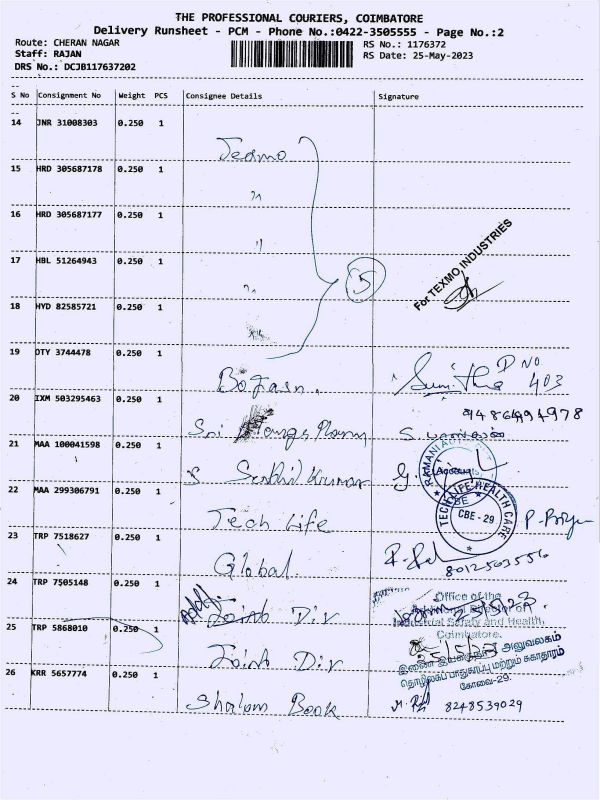 THE PROFESSIONAL COURIERS, COIMBATORE
Delivery Runsheet - PCM - Phone No.:0422-3505555 - Page No.:2
Route: CHERAN NAGAR
RS No.: 1176372
Staff: RAJAN
RS Date: 25-May-2023
DRS No.: DCJB117637202
S No Consignment No Weight PCS Consignee Details Signature
14 JNR 31008303 0.250 1
15 HRD 305687178 0.250 1 "
16 HRD 305687177 0.250 1 "
For TEXMO INDUSTRIES
17 HBL 51264943 0.250 1 "
5
18 HYD 82585721 0.250 1
19 OTY 3744478 0.250 1
D NO
403
20 IXM 503295463 0.250 1 Sri
21 MAA 100041598 0.250 1 S Senthil Kumar
22 MAA 299306791 0.250 1 Tech Life
TECH LIFE HEALTH CARE
CBE - 29
P. Priya
23 TRP 7518627 0.250 1 Global
8012563556
24 TRP 7505148 0.250 1 Joint Dir
Office of the
Industrial Safety and Health,
Coimbatore.
25 TRP 5868010 0.250 1 Joint Dir
அலுவலகம்
தொழிலகப் பாதுகாப்பு மற்றும் சுகாதாரம்
கோவை-29
26 KRR 5657774 0.250 1 Shalom Book
8248539029